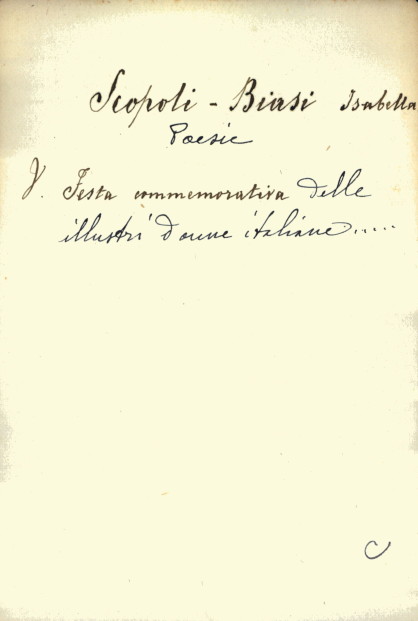 Scopoli - Biasi Isabella
Poesie
V. Festa commemorativa delle
illustri donne italiane.....
C